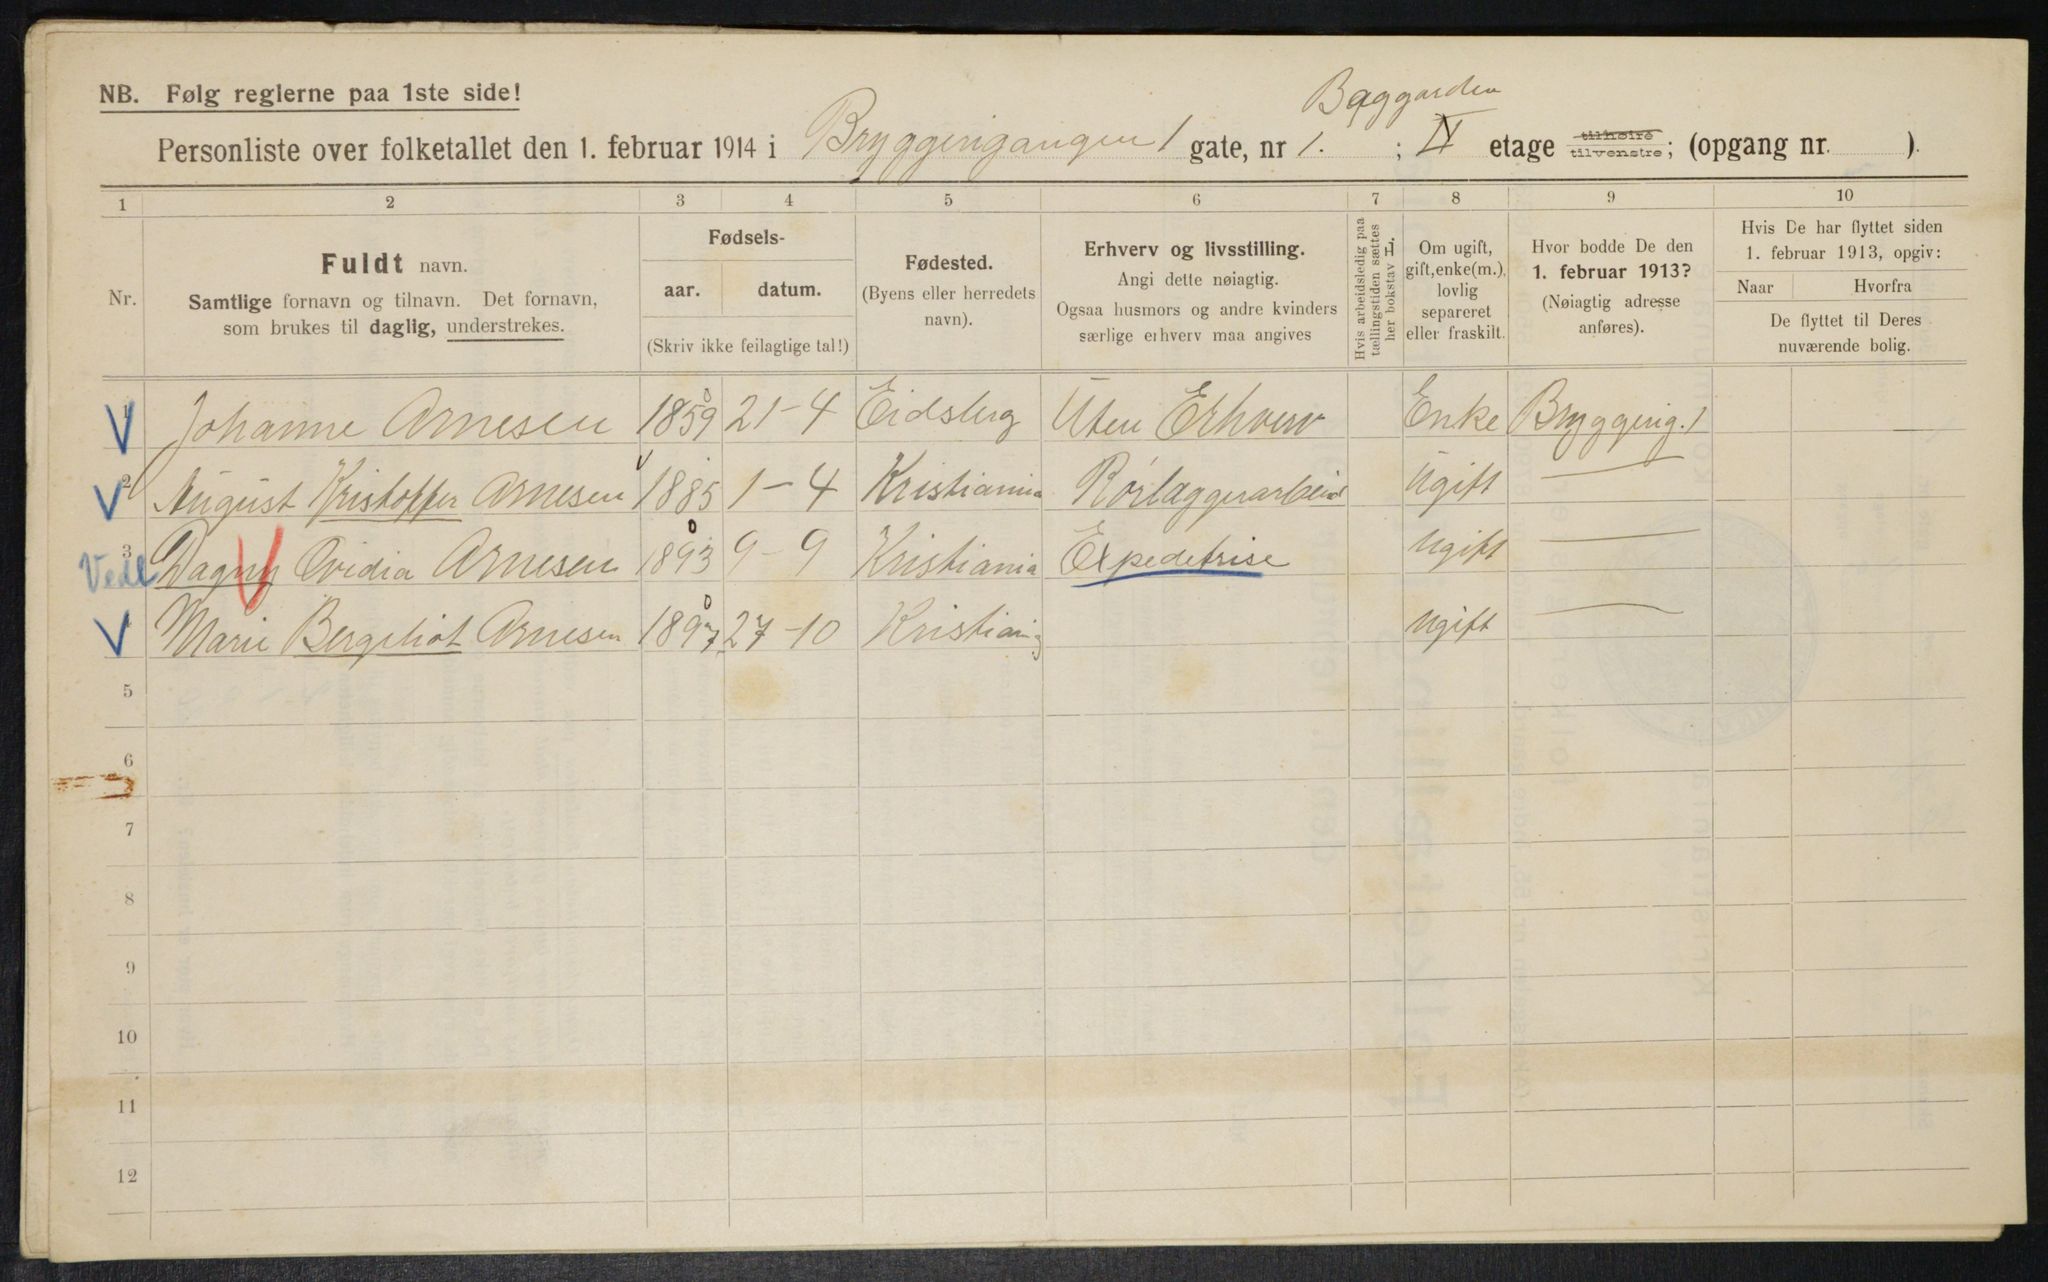 NB. Følg reglerne paa 1ste side!
Baggarden
Personliste over folketallet den 1. februar 1914 i Bryggerigangen 1 gate, nr 1. ; IV etage tilhøire tilvenstre; (opgang nr. ).
1 2 3 4 5 6 7 8 9 10
Nr.
Fuldt navn.
Samtlige fornavn og tilnavn. Det fornavn,
som brukes til daglig, understrekes.
Fødsels-
aar. datum.
(Skriv ikke feilagtige tal!)
Fødested.
(Byens eller herredets
navn).
Erhverv og livsstilling.
Angi dette nøiagtig.
Ogsaa husmors og andre kvinders
særlige erhverv maa angives
Hvis arbeidsledig paa
tællingstiden sættes
her bokstav L.
Om ugift,
gift, enke(m.),
lovlig
separeret
eller fraskilt.
Hvor bodde De den
1. februar 1913?
(Nøiagtig adresse
anføres).
Hvis De har flyttet siden
1. februar 1913, opgiv:
Naar Hvorfra
De flyttet til Deres
nuværende bolig.
1 Johanne Arnesen 1859 21-4 Eidsberg Uten Erhverv Enke Bryggerig. 1
2 August Kristoffer Arnesen 1885 1-4 Kristiania Rörlæggerarbeid Ugift —
Vedl 3 Dagny Ovidia Arnesen 1893 9-9 Kristiania Expedetrise Ugift —
4 Marie Bergeliot Arnesen 1897 27-10 Kristiania Ugift —
5
6
7
8
9
10
11
12